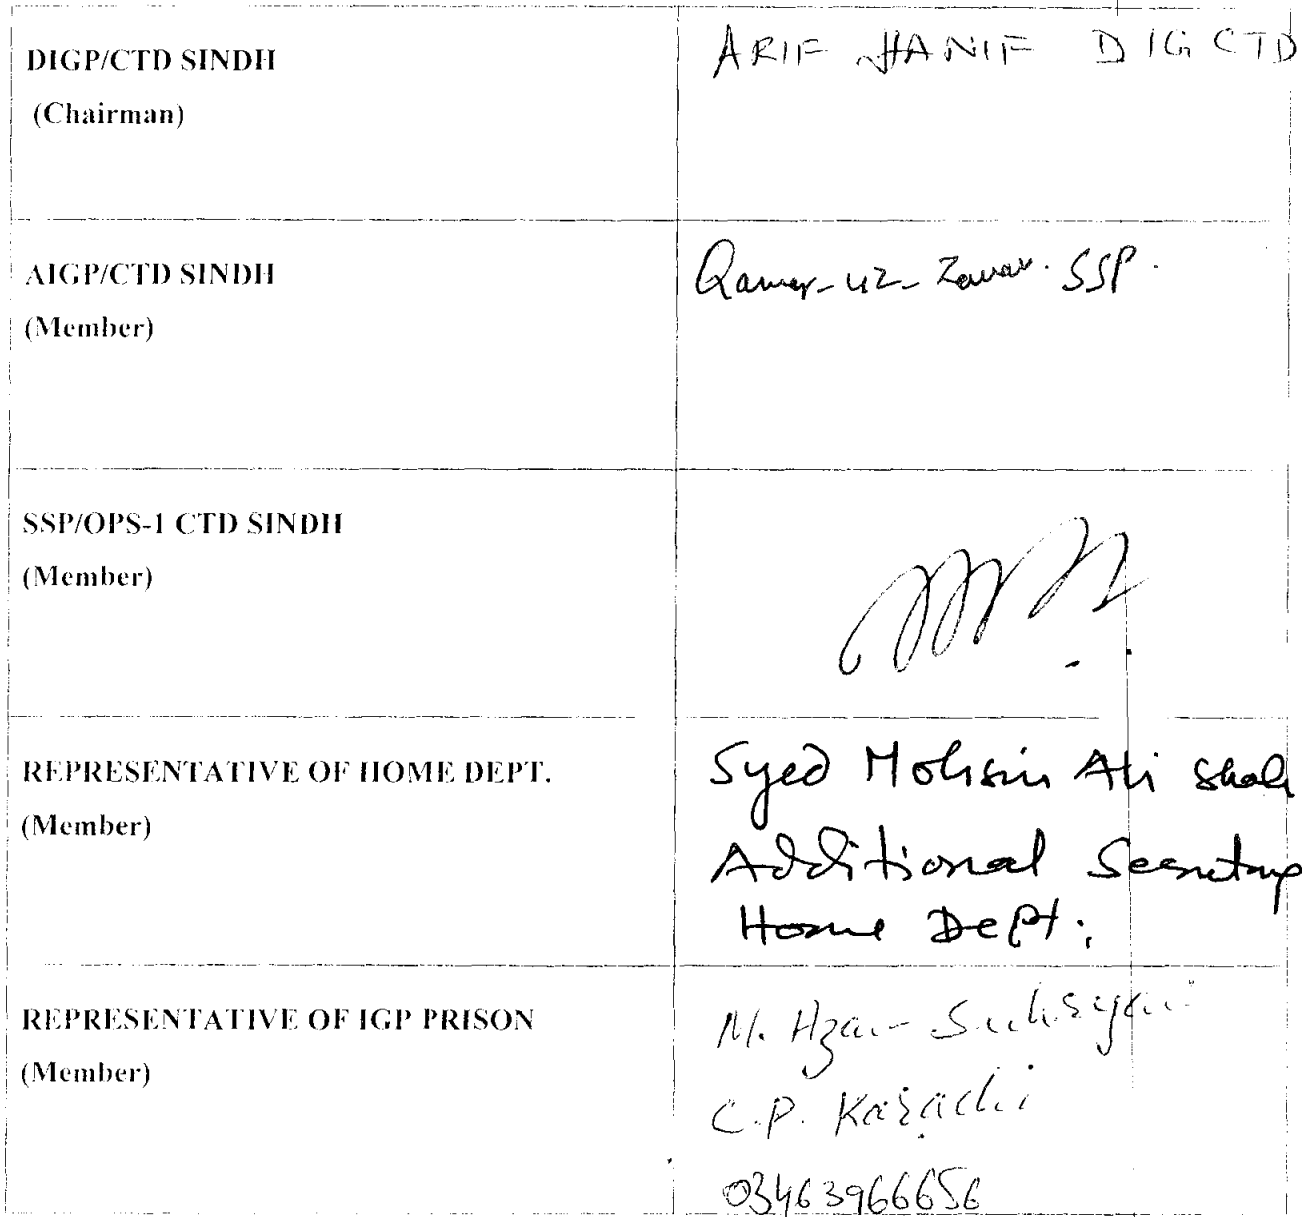 DIGP/CTD SINDH
(Chairman)
ARIF HANIF DIG CTD
AIGP/CTD SINDH
(Member)
Qamar-uz-Zaman. SSP.
SSP/OPS-1 CTD SINDH
(Member)
REPRESENTATIVE OF HOME DEPT.
(Member)
Syed Mohsin Ali Shah
Additional Secretary
Home Dept:
REPRESENTATIVE OF IGP PRISON
(Member)
M.
C.P. Karachi
03463966656